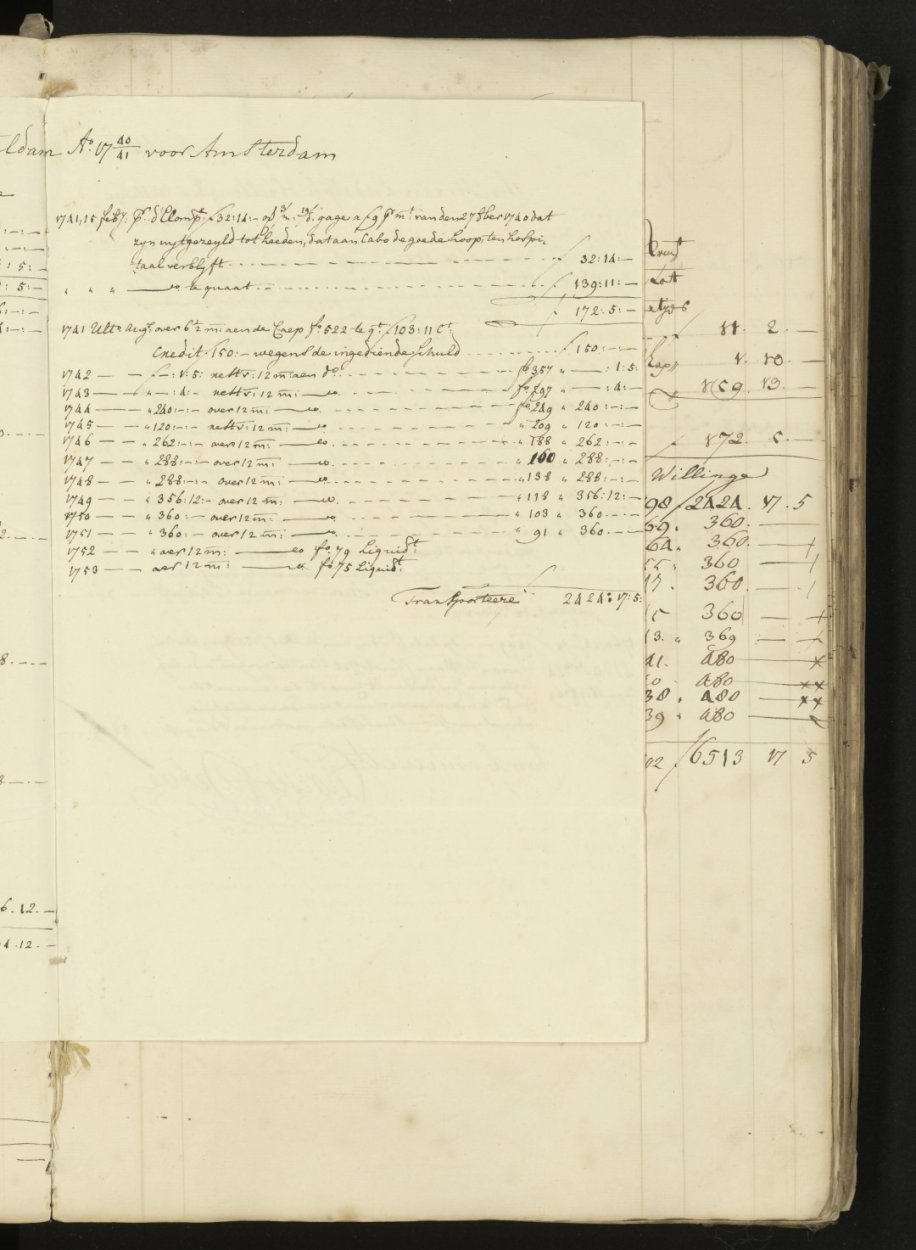 ldam Aº 17 40/41 voor Amsterdam
1741, 15 feb: Pr. d'Comp. ƒ 32:14:- op 3/m: 19/d: gage a ƒ 9 pr mt van den 27 8ber 1740 dat
zyn uytgezeyld tot heeden, dat aan Cabo de goede hoop, ten hospi,
taal verblyft - - - ƒ 32:14:-
" " " te quaat - - - ƒ 139:11:-
ƒ 172:5:-
1741 Ulto Augo over 6 2/m: aen de Caep fo 522 te qt ƒ 103:11 Ct
Credit ƒ 150:- wegens de ingediende schuld - - - ƒ 150:-
1742 - - ƒ -:1:5: nett v: 12 m: aen do - - - fo 357 " -:1:5:
1743 - - " -:4:- nett v: 12 m: - - - fo 297 " -:4:-
1744 - - " 240:-:- over 12 m: - - - fo 249 " 240:-:-
1745 - - " 120:-:- nett v: 12 m: - - - " 209 " 120:-:-
1746 - - " 262:-:- over 12 m: - - - " 188 " 262:-:-
1747 - - " 288:-:- over 12 m: - - - " 160 " 288:-:-
1748 - - " 288:-:- over 12 m: - - - " 138 " 288:-:-
1749 - - " 356:12:- over 12 m: - - - " 118 " 356:12:-
1750 - - " 360:- over 12 m: - - - " 103 " 360:-:-
1751 - - " 360:- over 12 m: - - - " 91 " 360:-:-
1752 - - " over 12 m: fo 79 Liquidt
1753 - - over 12 m: fo 75 Liquidt
Transporteere ƒ 2424:17:5:
11. 2. -
1. 10. -
159 13. -
172. 5. -
Willinge
98 ƒ 2424. 17. 5
59. 360. -
64. 360. -
55 " 360 -
17. 360. -
15 360 -
13. " 369 -
41. 480 -
480 -
38 " 480 -
39 " 480 -
02 ƒ 6513 17 5
: 5: -
: 5: -
6. 12. -
4. 12. -